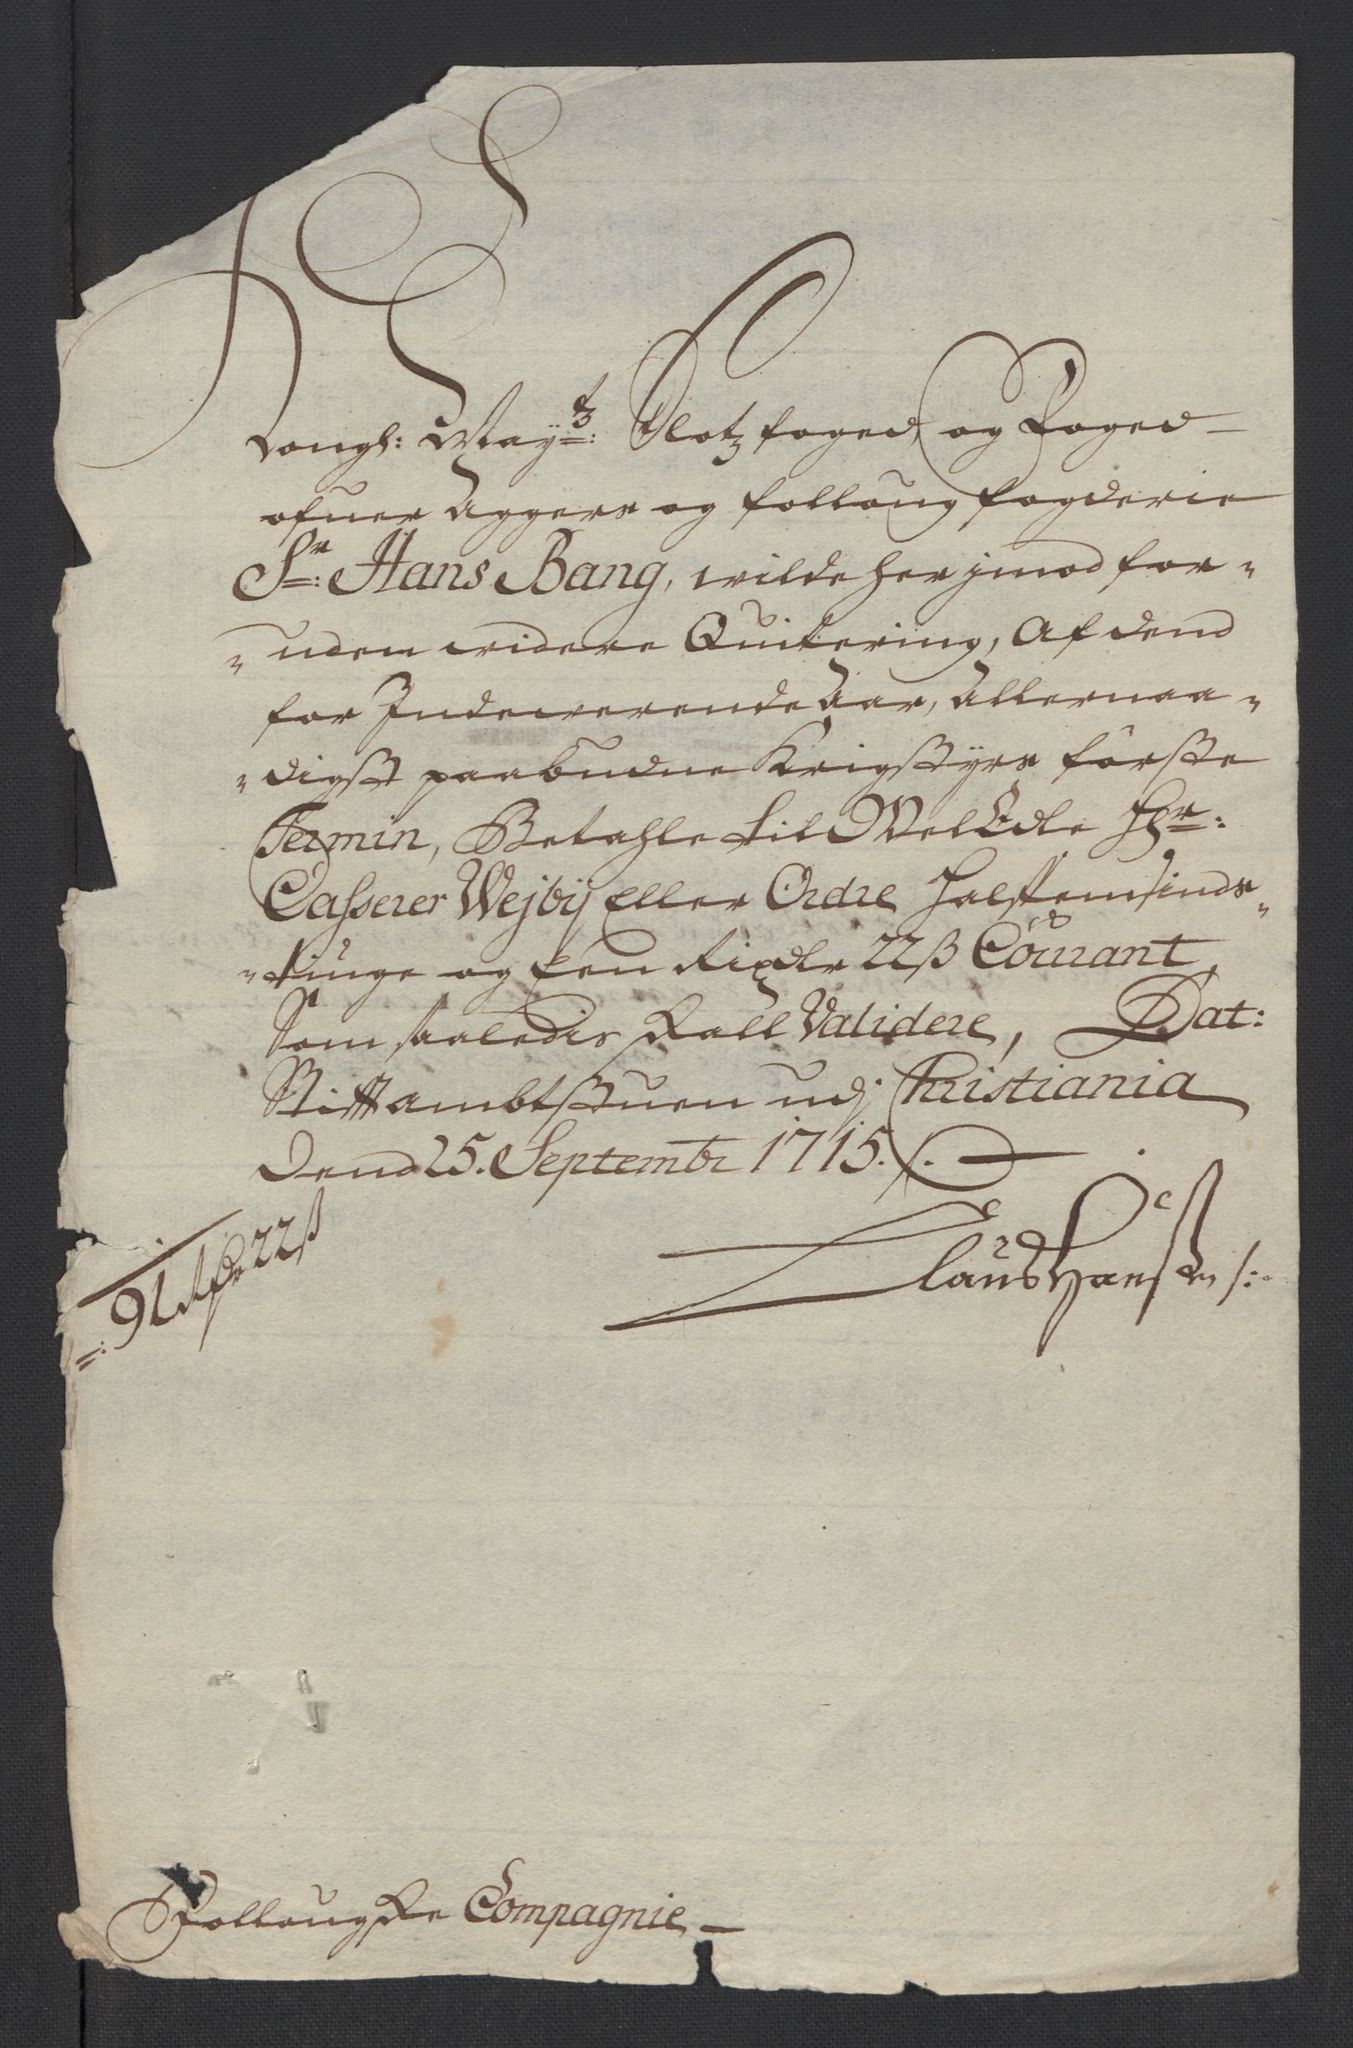 Kongl: Mayts: Slotz foged, og Foged
ofuer Aggers og folloug fogderie
Sr: Hans Bang, wilde her jmod for-
uden widere Quitering, Af dend
for Indewerende Aar, Allernaa-
digst paabudne Krigstyrs første
Termin, Betahle til WelEdle Hr:
Casserer Wejbÿ Eller Ordre halffemsinds-
tiuge og Een Rixdlr 22ß Courant,
Som saaledis skall Validere, Dat:
Stiftambtstuen udj Christiania
Dend 25. Septembr 1715.
Claus Hansen
91 Rdr 22ß
Follougske Compagnie